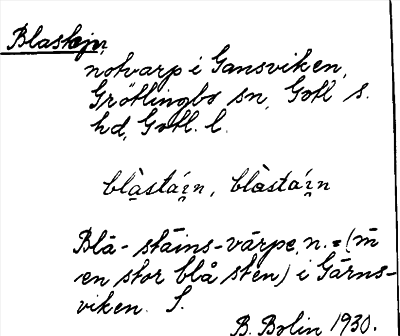 Blastejn,
notvarp i Gansviken,
Grötlingbo sn, Gotl s.
hd, Gotl. l.
blàstá́i̯n, blàstá́i̯n
Blå-stäins-värpe, n. = (m
en stor blå sten) i Gärns-
viken. S.
B. Bolin 1930.